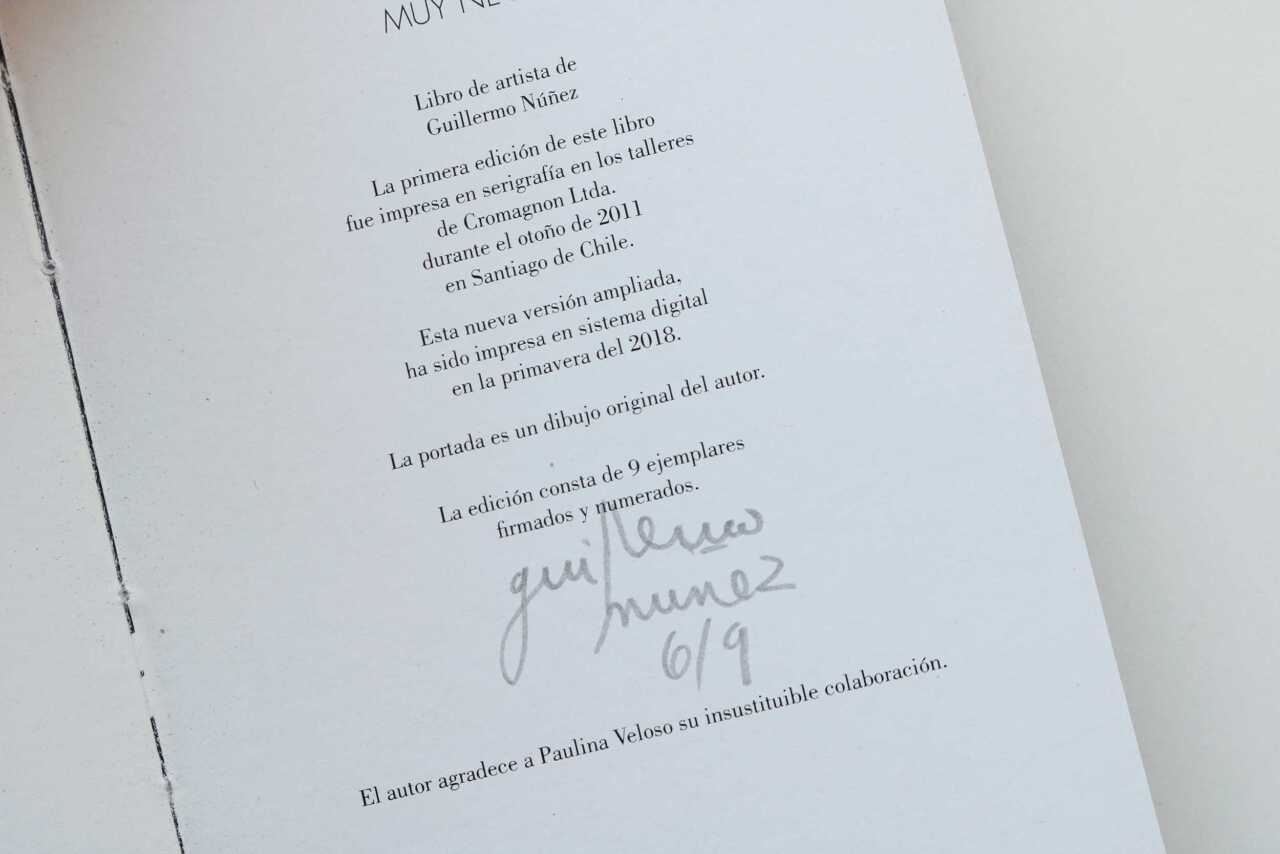 MUY
Libro de artista de
Guillermo Núñez
La primera edición de este libro
fue impresa en serigrafía en los talleres
de Cromagnon Ltda.
durante el otoño de 2011
en Santiago de Chile.
Esta nueva versión ampliada,
ha sido impresa en sistema digital
en la primavera del 2018.
La portada es un dibujo original del autor.
La edición consta de 9 ejemplares
firmados y numerados.
guillermo
nunez
6/9
El autor agradece a Paulina Veloso su insustituible colaboración.